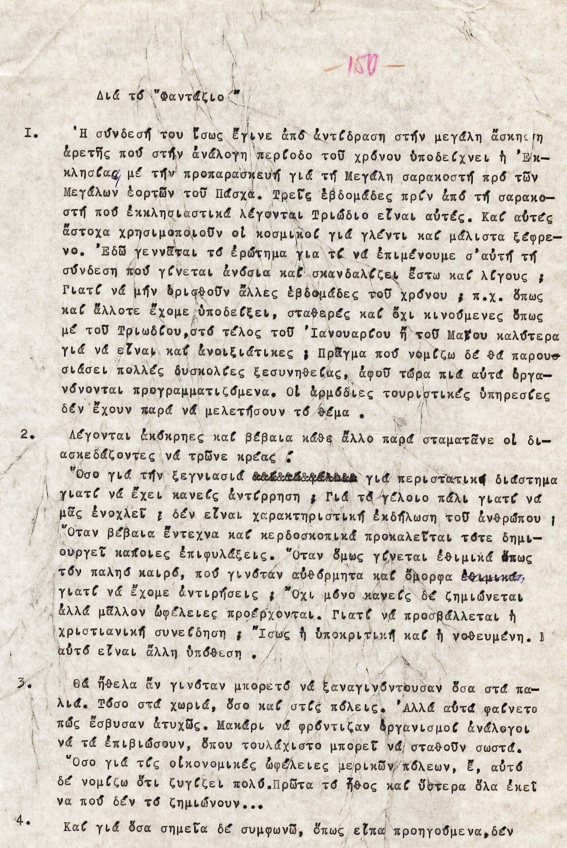 -150-
Διά τό "Φαντάζιο"
1. Ἡ σύνδεσή του ἴσως ἔγινε ἀπό ἀντίδραση στήν μεγάλη ἄσκηση
ἀρετῆς πού στήν ἀνάλογη περίοδο τοῦ χρόνου ὑποδείχνει ἡ Ἐκ-
κλησίας, μέ τήν προπαρασκευή γιά τή Μεγάλη σαρακοστή πρό τῶν
Μεγάλων ἑορτῶν τοῦ Πάσχα. Τρεῖς ἑβδομάδες πρίν ἀπό τή σαρακο-
στή πού ἐκκλησιαστικά λέγονται Τριώδιο εἶναι αὐτές. Καί αὐτές
ἄστοχα χρησιμοποιοῦν οἱ κοσμικοί γιά γλέντι καί μάλιστα ξέφρε-
νο. Ἐδῶ γεννᾶται τό ἐρώτημα γιά τί νά ἐπιμένουμε σ'αὐτή τή
σύνδεση πού γίνεται ἀνόσια καί σκανδαλίζει ἔστω καί λίγους ;
Γιατί νά μήν ὁρισθοῦν ἄλλες ἑβδομάδες τοῦ χρόνου ; π.χ. ὅπως
καί ἄλλοτε ἔχομε ὑποδείξει, σταθερές καί ὄχι κινούμενες ὅπως
μέ τοῦ Τριωδίου,στό τέλος τοῦ Ἰανουαρίου ἤ τοῦ Μαΐου καλύτερα
γιά νά εἶναι καί ἀνοιξιάτικες ; Πρᾶγμα πού νομίζω δέ θά παρου-
σιάσει πολλές δυσκολίες ξεσυνηθείας, ἀφοῦ τώρα πιά αὐτά ὀργα-
νώνονται προγραμματιζόμενα. Οἱ ἁρμόδιες τουριστικές ὑπηρεσίες
δέν ἔχουν παρά νά μελετήσουν τό θέμα .
2. Λέγονται ἀπόκρηες καί βέβαια κάθε ἄλλο παρά σταματᾶνε οἱ δι-
ασκεδάζοντες νά τρῶνε κρέας !
Ὅσο γιά τήν ξεγνιασιά γιά περιστατικό διάστημα
γιατί νά ἔχει κανείς ἀντίρρηση ; Γιά τό γέλοιο πάλι γιατί νά
μᾶς ἐνοχλεῖ ; δέν εἶναι χαρακτηριστική ἐκδήλωση τοῦ ἀνθρώπου ;
Ὅταν βέβαια ἔντεχνα καί κερδοσκοπικά προκαλεῖται τότε δημι-
ουργεῖ κάποιες ἐπιφυλάξεις. Ὅταν ὅμως γίνεται ἐθιμικά ὅπως
τόν παληό καιρό, πού γινόταν αὐθόρμητα καί ὄμορφα ἐθιμικά,
γιατί νά ἔχομε ἀντιρήσεις ; Ὄχι μόνο κανείς δέ ζημιώνεται
ἀλλά μᾶλλον ὠφέλειες προέρχονται. Γιατί νά προσβάλλεται ἡ
χριστιανική συνείδηση ; Ἴσως ἡ ὑποκριτική καί ἡ νοθευμένη.
αὐτό εἶναι ἄλλη ὑπόθεση .
3. Θά ἤθελα ἄν γινόταν μπορετό νά ξαναγινόντουσαν ὅσα στά πα-
λιά. Τόσο στά χωριά, ὅσο καί στίς πόλεις. Ἀλλά αὐτά φαίνετο
πώς ἔσβυσαν ἀτυχῶς. Μακάρι νά φρόντιζαν ὀργανισμοί ἀνάλογοι
νά τά ἐπιβιώσουν, ὅπου τουλάχιστο μπορεῖ νά σταθοῦν σωστά.
Ὅσο γιά τίς οἰκονομικές ὠφέλειες μερικῶν πόλεων, ἔ, αὐτό
δέ νομίζω ὅτι ζυγίζει πολύ.Πρῶτα τό ἦθος καί ὕστερα ὅλα ἐκεῖ
να πού δέν τό ζημιώνουν...
4. Καί γιά ὅσα σημεῖα δέ συμφωνῶ, ὅπως εἶπα προηγούμενα,δέν